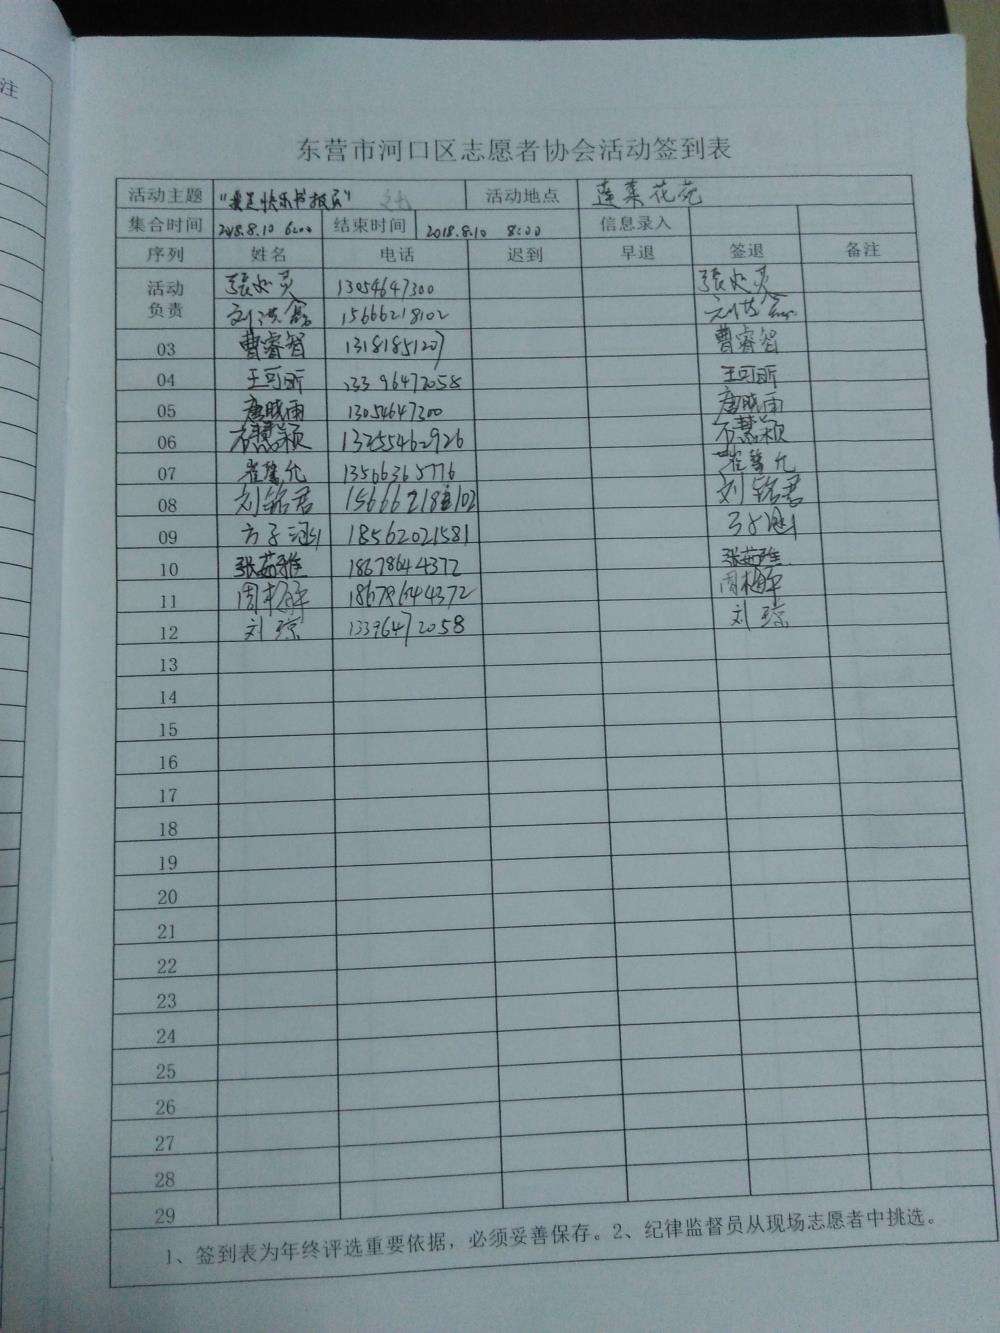 注
东营市河口区志愿者协会活动签到表
活动主题 "我是快乐书报员" 活动地点 蓬莱花苑
集合时间 2018.8.10 6:00 结束时间 2018.8.10 8:00 信息录入
序列 姓名 电话 迟到 早退 签退 备注
活动 13054647300
负责 15666218102
03 曹睿智 13181851207 曹睿智
04 王可昕 13396472058 王可昕
05 唐晓雨 13054647300 唐晓雨
06 石慧颖 13255462926 石慧颖
07 崔馨允 13566365776 崔馨允
08 刘铭君 15666218102 刘铭君
09 18562021581
10 张茹雅 18678644372 张茹雅
11 周梅 18678644372 周梅
12 刘琼 13396472058 刘琼
13
14
15
16
17
18
19
20
21
22
23
24
25
26
27
28
29
1、签到表为年终评选重要依据，必须妥善保存。2、纪律监督员从现场志愿者中挑选。